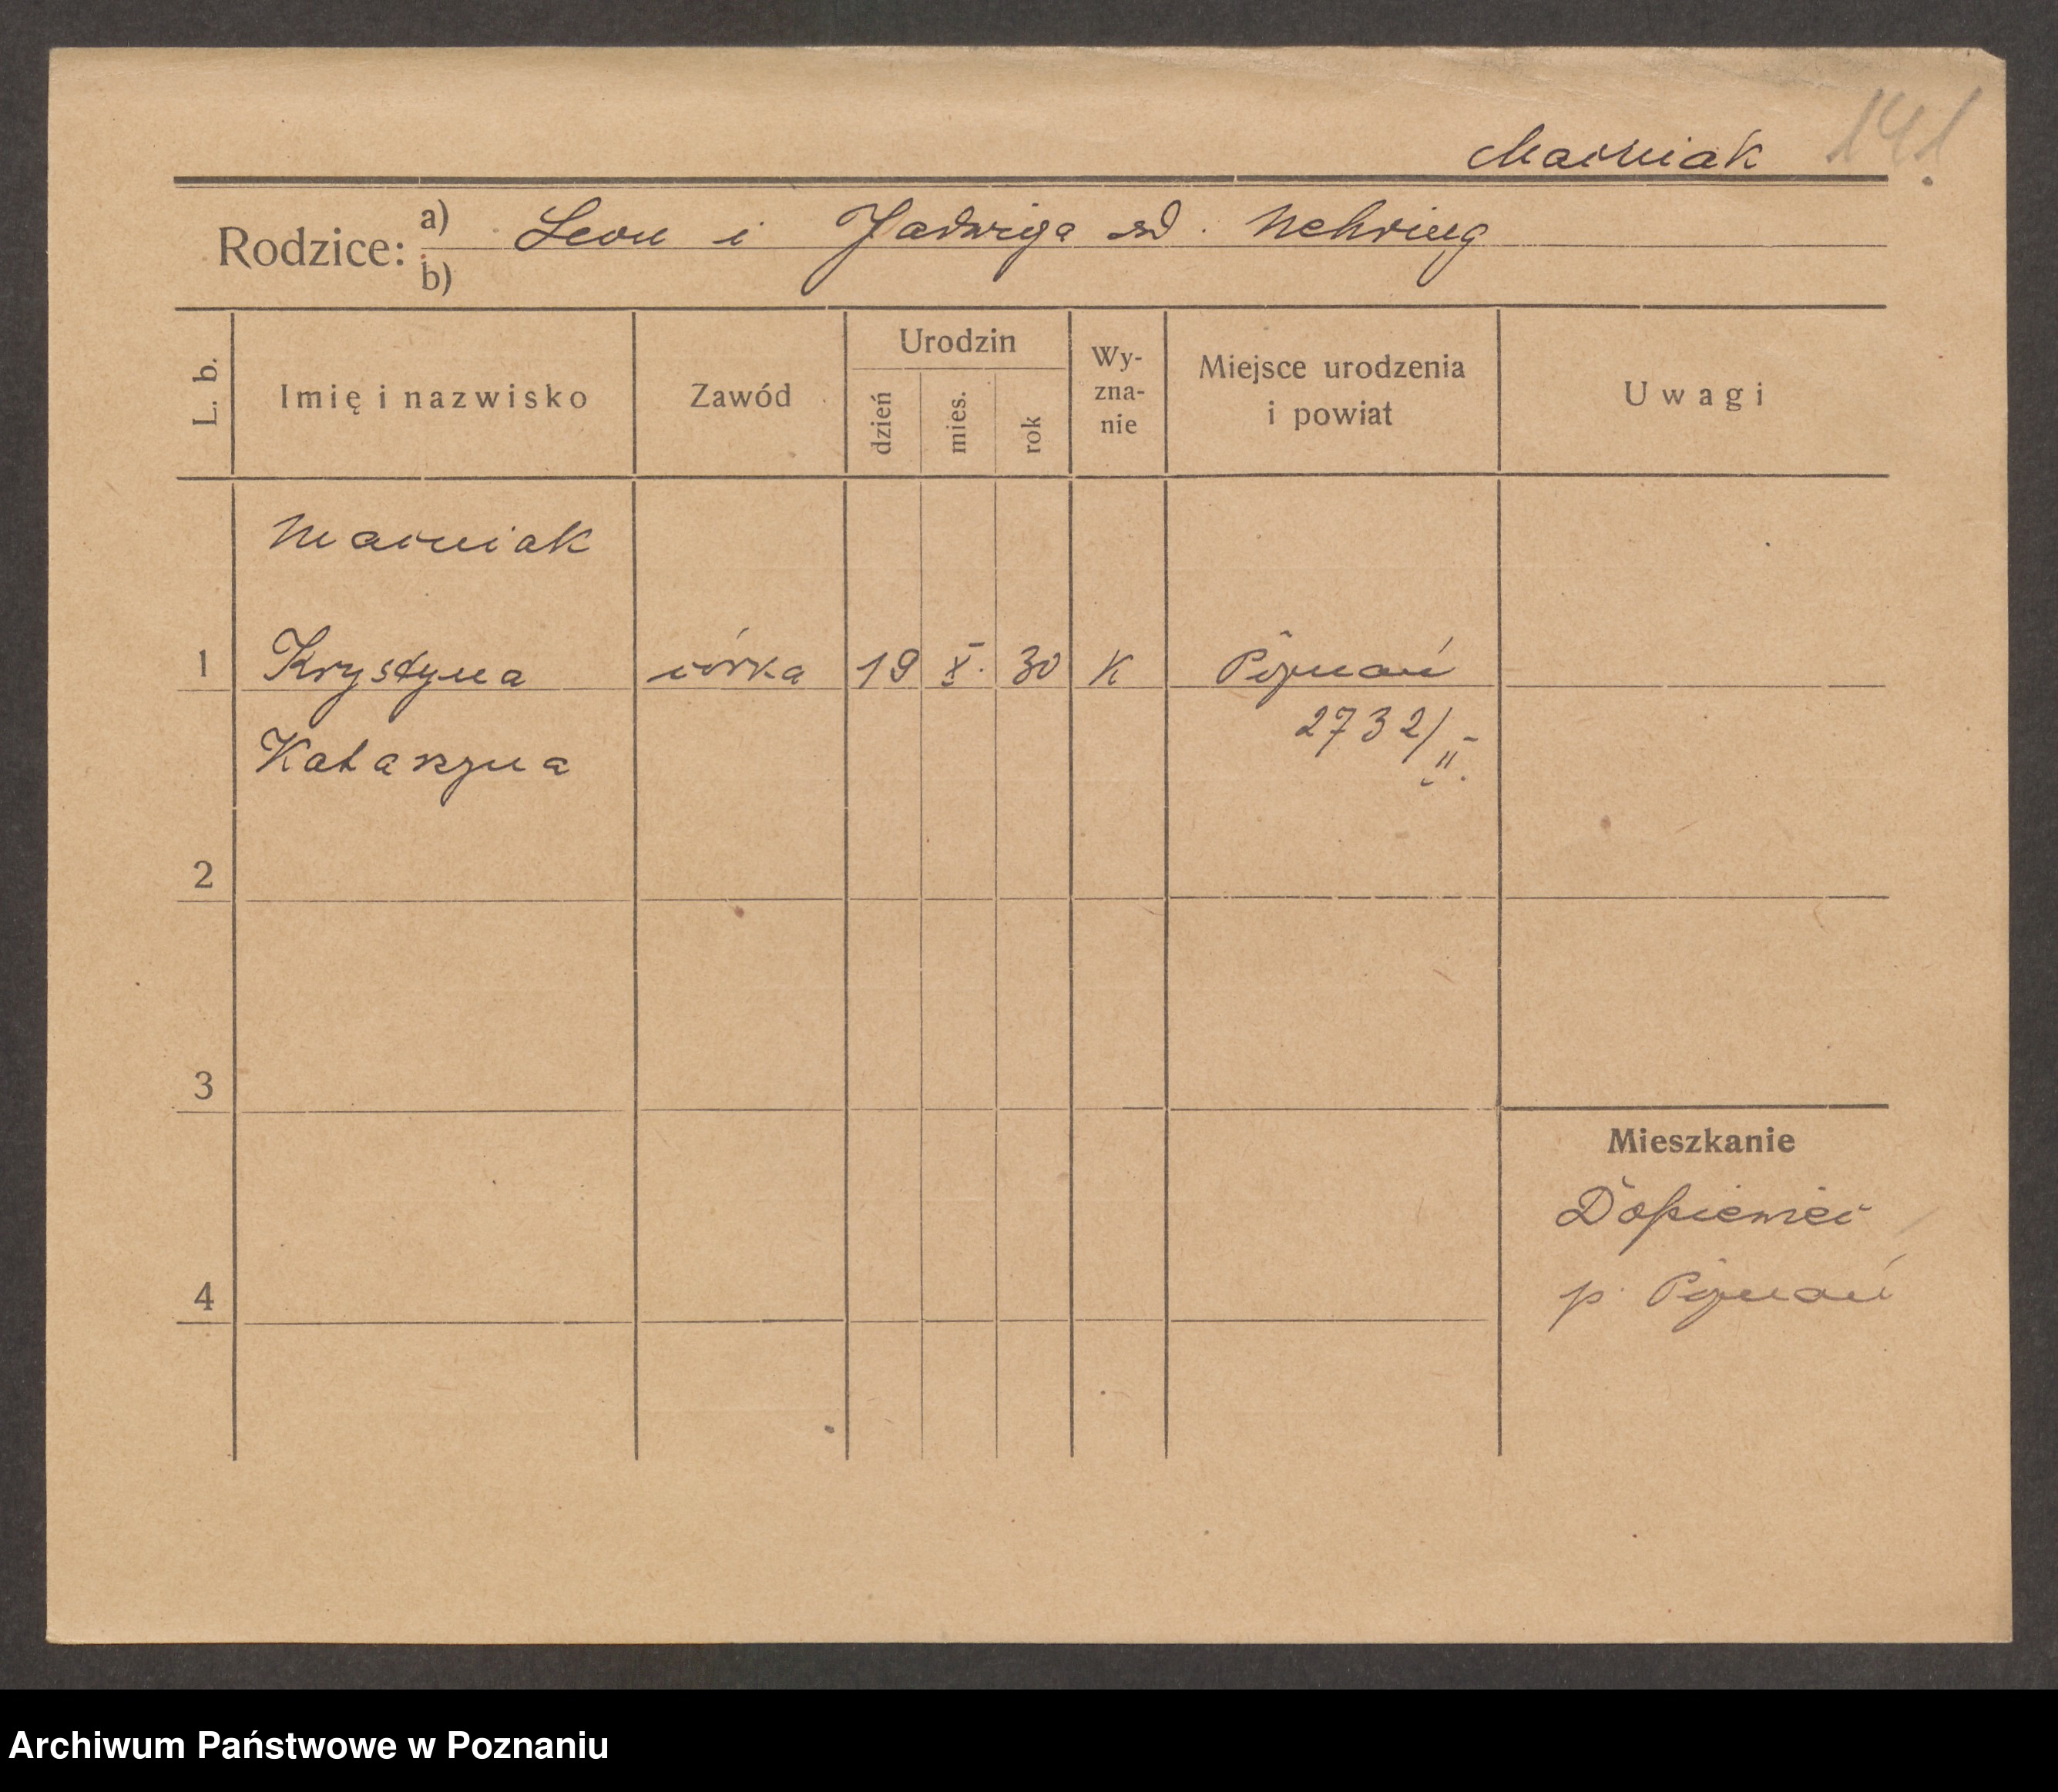 141
Maćkiak
Rodzice: a) Leon i Jadwiga zd. Nehring
b)
L. b.
Imię i nazwisko
Zawód
Urodzin
dzień
mies.
rok
Wy-
zna-
nie
Miejsce urodzenia
i powiat
Uwagi
1
Krystyna
córka 19 X. 30 K Poznań
Katarzyna
2732/II.
2
3
4
Mieszkanie
Dopiewiec
p. Poznań
Archiwum Państwowe w Poznaniu